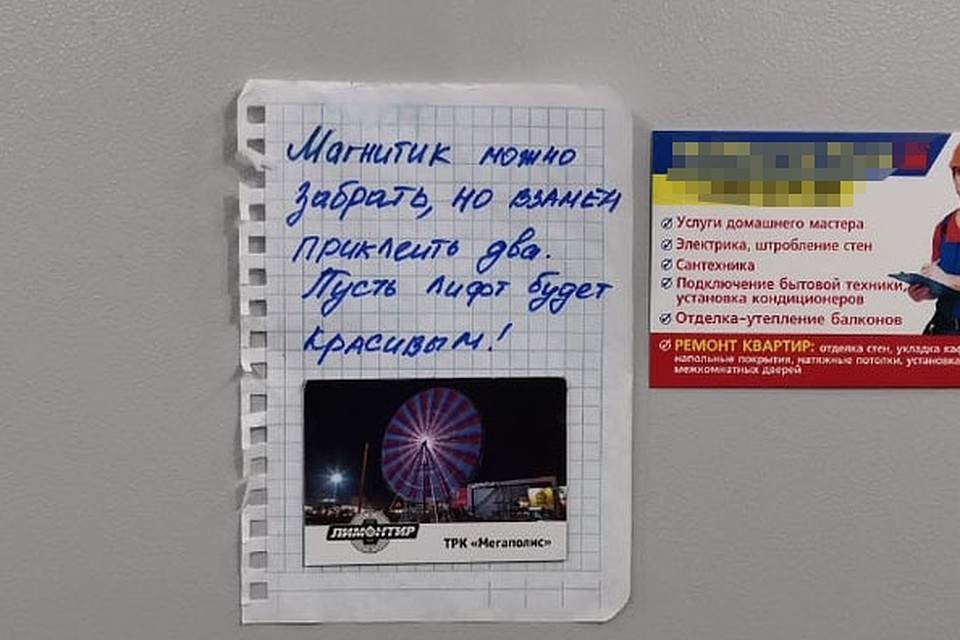 Магнитик можно
забрать, но взамен
приклеить два.
Пусть лифт будет
красивым!
ЛИМОНТИР
ТРК «Мегаполис»
Услуги домашнего мастера
Электрика, штробление стен
Сантехника
Подключение бытовой техники,
установка кондиционеров
Отделка-утепление балконов
РЕМОНТ КВАРТИР: отделка стен, укладка
напольные покрытия, натяжные потолки, установка
межкомнатных дверей